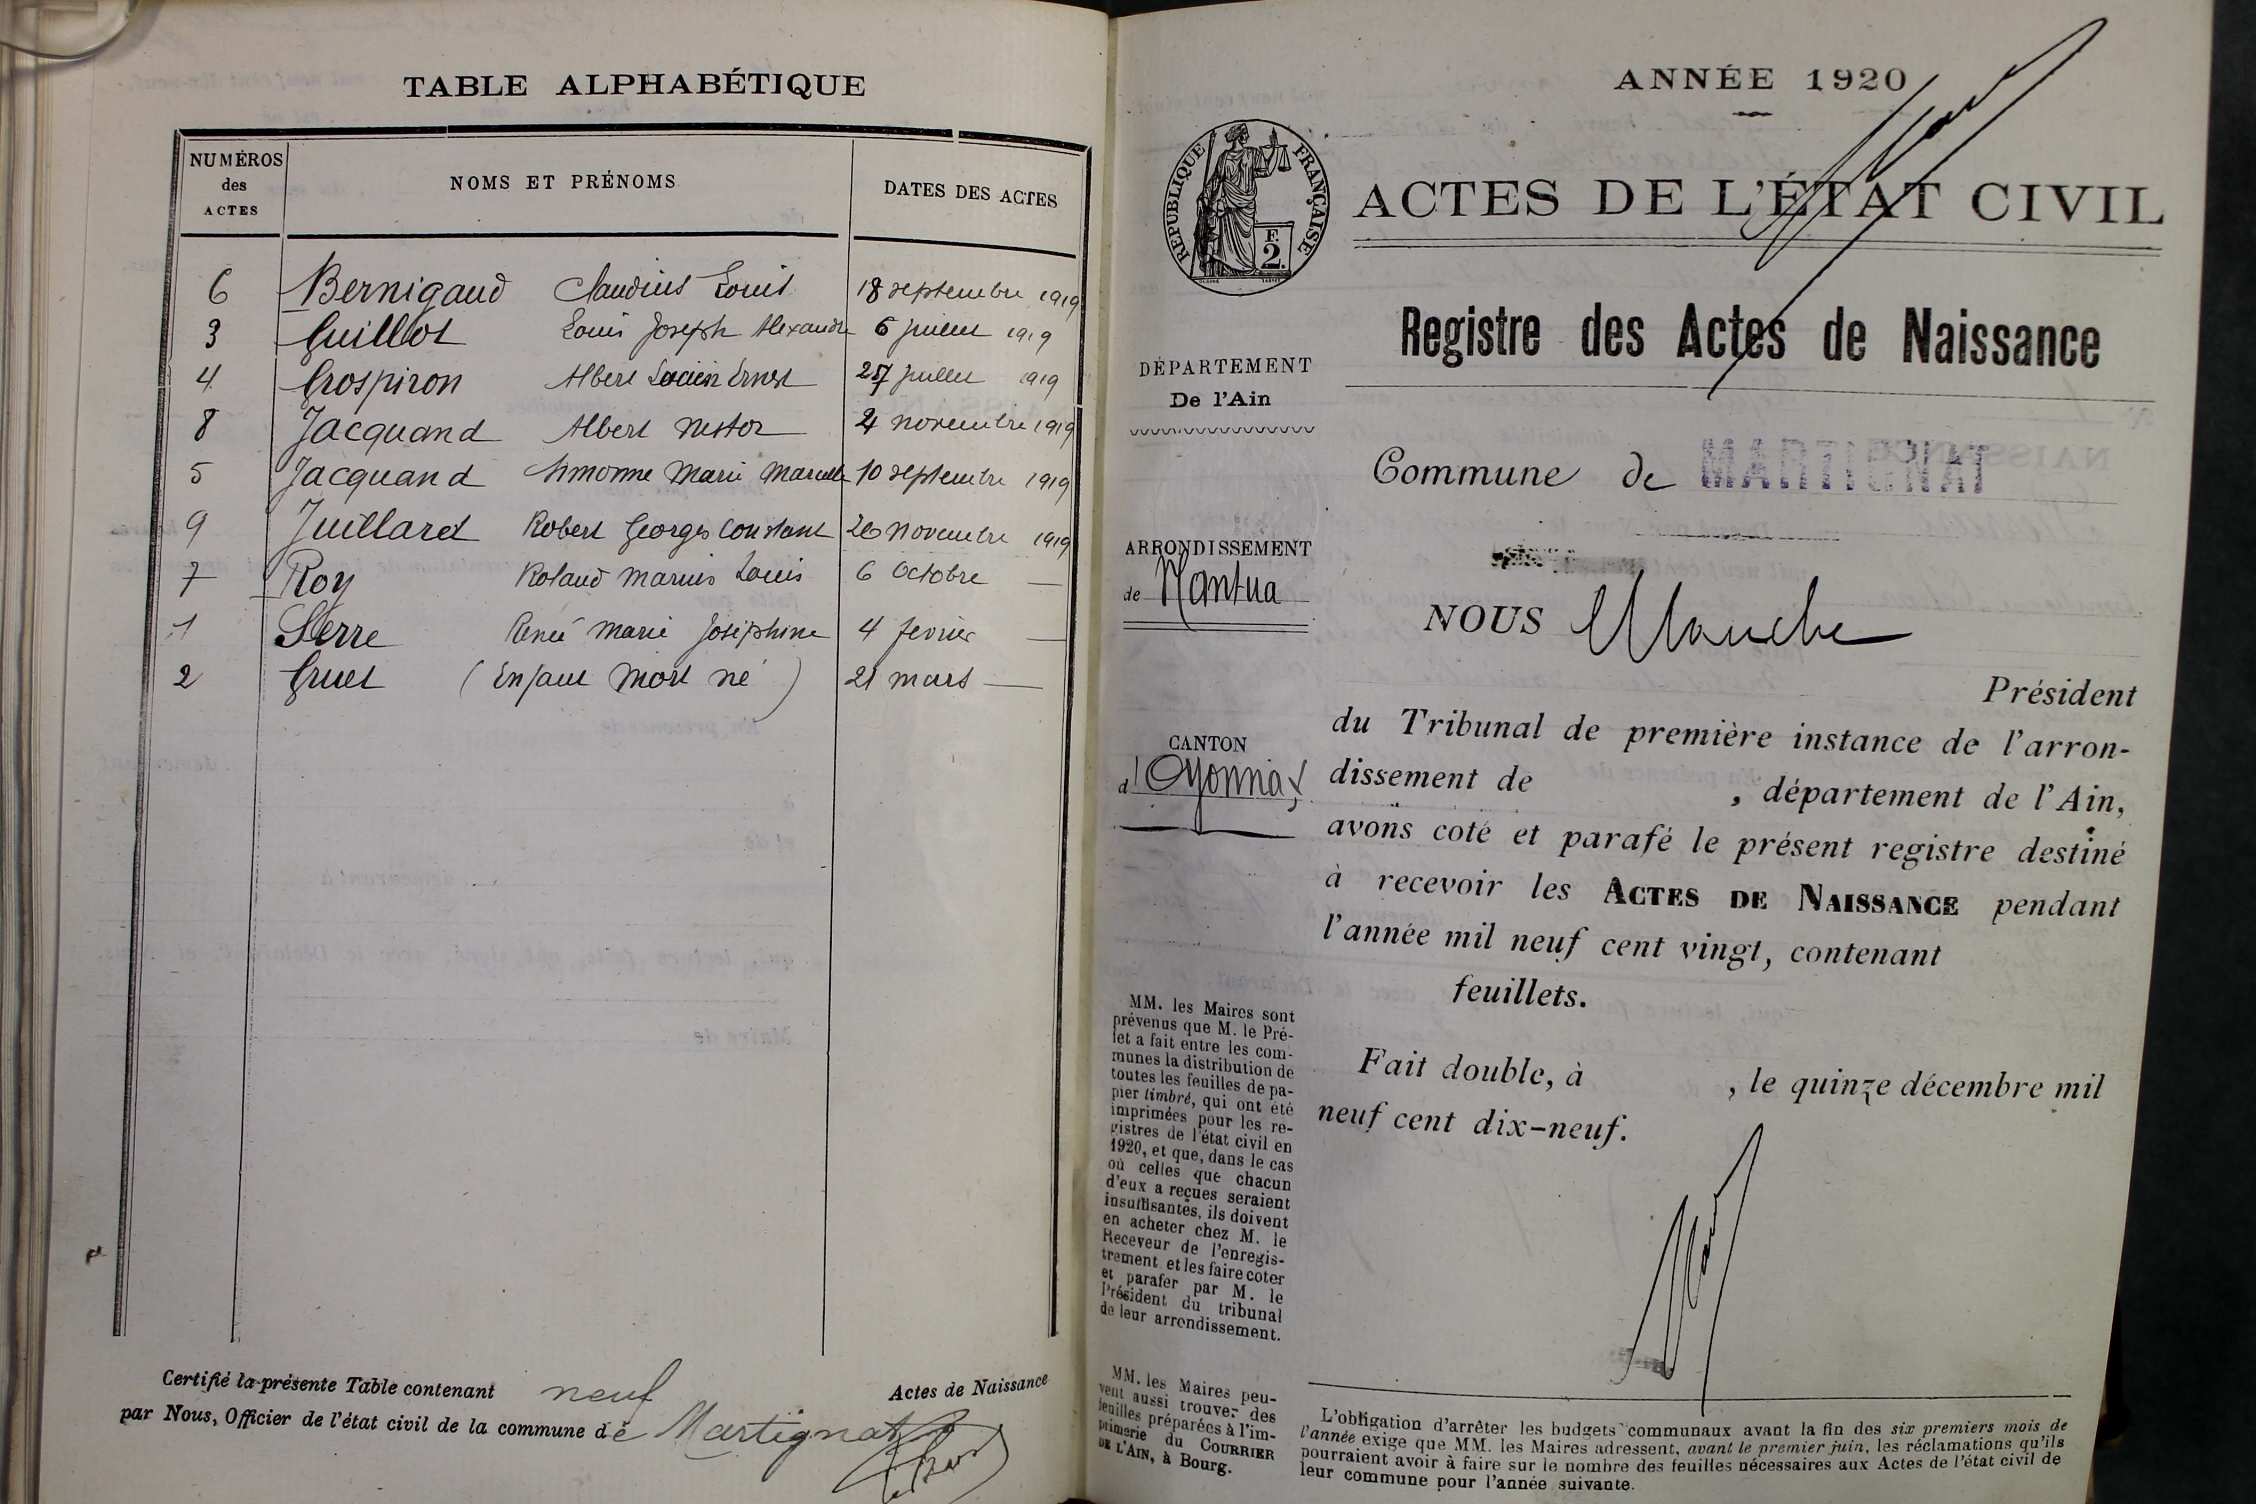 TABLE ALPHABÉTIQUE
NUMÉROS des ACTES
NOMS ET PRÉNOMS
DATES DES ACTES
6 Bernigaud Claudius Louis 18 septembre 1919
3 Guillot Louis Joseph Alexandre 6 juillet 1919
4 Grospiron Albert Lucien Ernest 27 juillet 1919
8 Jacquand Albert Nestor 4 novembre 1919
5 Jacquand Simonne Marie Marcelle 10 septembre 1919
9 Juillard Robert Georges Constant 26 novembre 1919
7 Roy Roland Marius Louis 6 Octobre —
1 Serre Renée Marie Joséphine 4 fevrier —
2 Gruet (Enfant Mort né) 21 mars —
Certifié la présente Table contenant neuf Actes de Naissance
par Nous, Officier de l'état civil de la commune de Martignat
ANNÉE 1920
RÉPUBLIQUE FRANÇAISE
F. 2.
ACTES DE L'ÉTAT CIVIL
Registre des Actes de Naissance
DÉPARTEMENT
De l'Ain
Commune de MARTIGNAT
ARRONDISSEMENT
de Nantua
NOUS
Président
du Tribunal de première instance de l'arron-
CANTON
d'Oyonnax
dissement de , département de l'Ain,
avons coté et parafé le présent registre destiné
à recevoir les ACTES DE NAISSANCE pendant
l'année mil neuf cent vingt, contenant
feuillets.
Fait double, à , le quinze décembre mil
neuf cent dix-neuf.
MM. les Maires sont
prévenus que M. le Pré-
fet a fait entre les com-
munes la distribution de
toutes les feuilles de pa-
pier timbré, qui ont été
imprimées pour les re-
gistres de l'état civil en
1920, et que, dans le cas
où celles que chacun
d'eux a reçues seraient
insuffisantes, ils doivent
en acheter chez M. le
Receveur de l'enregis-
trement et les faire coter
et parafer par M. le
Président du tribunal
de leur arrondissement.
MM. les Maires peu-
vent aussi trouver des
feuilles préparées à l'im-
primerie du COURRIER
DE L'AIN, à Bourg.
L'obligation d'arrêter les budgets communaux avant la fin des six premiers mois de
l'année exige que MM. les Maires adressent, avant le premier juin, les réclamations qu'ils
pourraient avoir à faire sur le nombre des feuilles nécessaires aux Actes de l'état civil de
leur commune pour l'année suivante.